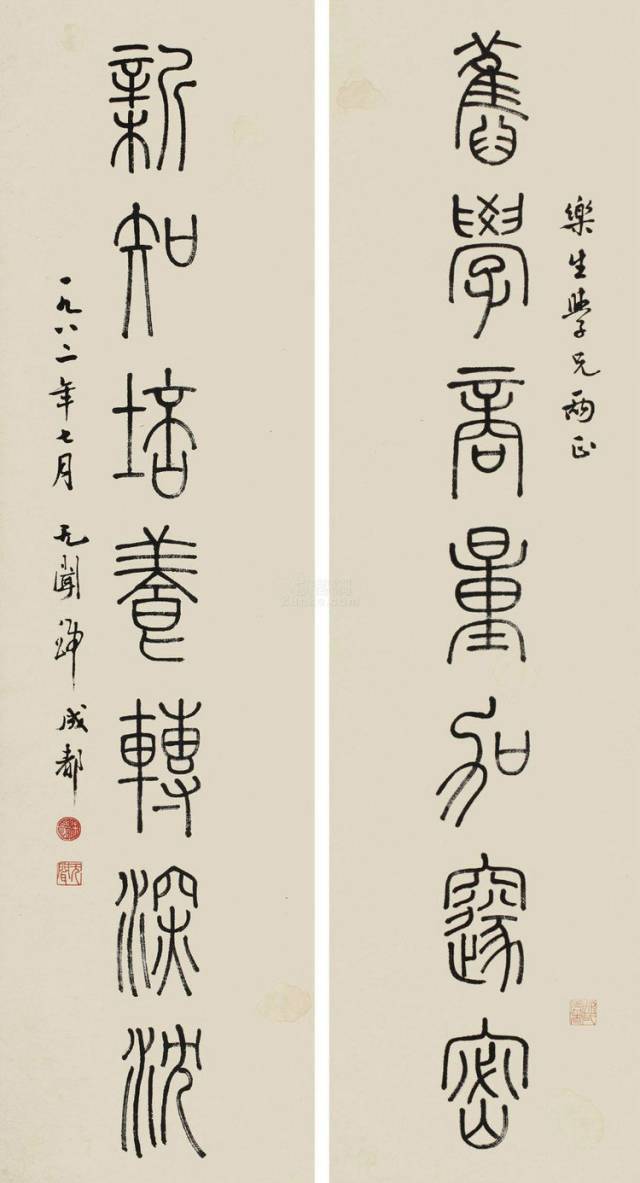 樂生學兄兩正
舊學商量加邃密
新知培養轉深沈
一九八二年七月 无聞 成都